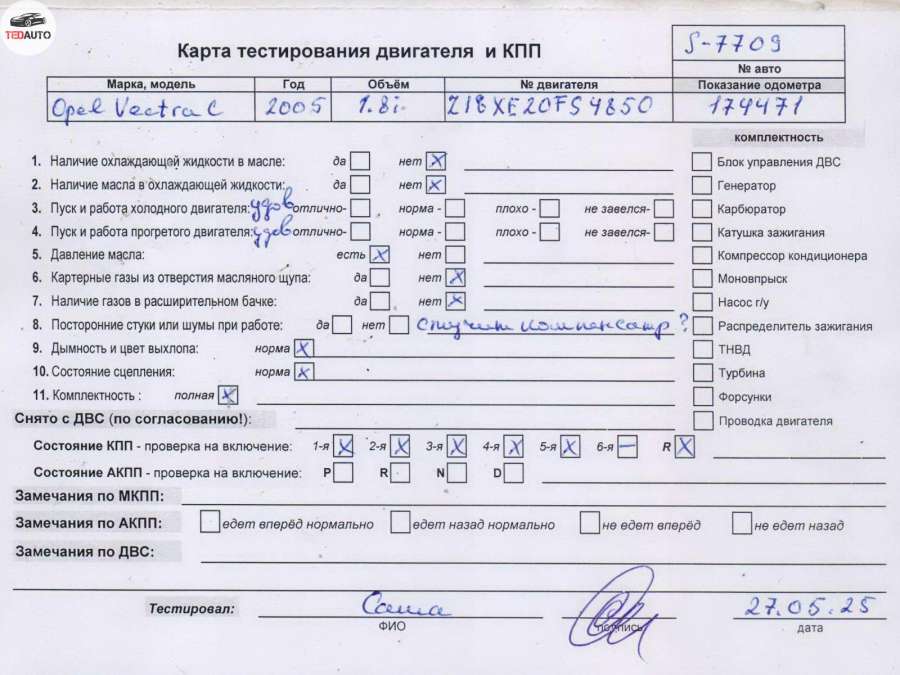 TEDAUTO
Карта тестирования двигателя и КПП
S-7709
№ авто
Марка, модель Год Объём № двигателя Показание одометра
Opel Vectra C 2005 1.8i Z18XE20FS4850 174471
комплектность
1. Наличие охлаждающей жидкости в масле: да нет X
Блок управления ДВС
2. Наличие масла в охлаждающей жидкости: да нет X
Генератор
3. Пуск и работа холодного двигателя: удов отлично- норма - плохо - не завелся-
Карбюратор
4. Пуск и работа прогретого двигателя: удов отлично- норма - плохо - не завелся-
Катушка зажигания
5. Давление масла: есть X нет
Компрессор кондиционера
6. Картерные газы из отверстия масляного щупа: да нет X
Моновпрыск
7. Наличие газов в расширительном бачке: да нет X
Насос г/у
8. Посторонние стуки или шумы при работе: да нет стучит компенсатр?
Распределитель зажигания
9. Дымность и цвет выхлопа: норма X
ТНВД
10. Состояние сцепления: норма X
Турбина
11. Комплектность : полная X
Форсунки
Снято с ДВС (по согласованию!):
Проводка двигателя
Состояние КПП - проверка на включение: 1-я X 2-я X 3-я X 4-я X 5-я X 6-я — R X
Состояние АКПП - проверка на включение: P R N D
Замечания по МКПП:
Замечания по АКПП: едет вперёд нормально едет назад нормально не едет вперёд не едет назад
Замечания по ДВС:
Тестировал: Саша 27.05.25
ФИО подпись дата